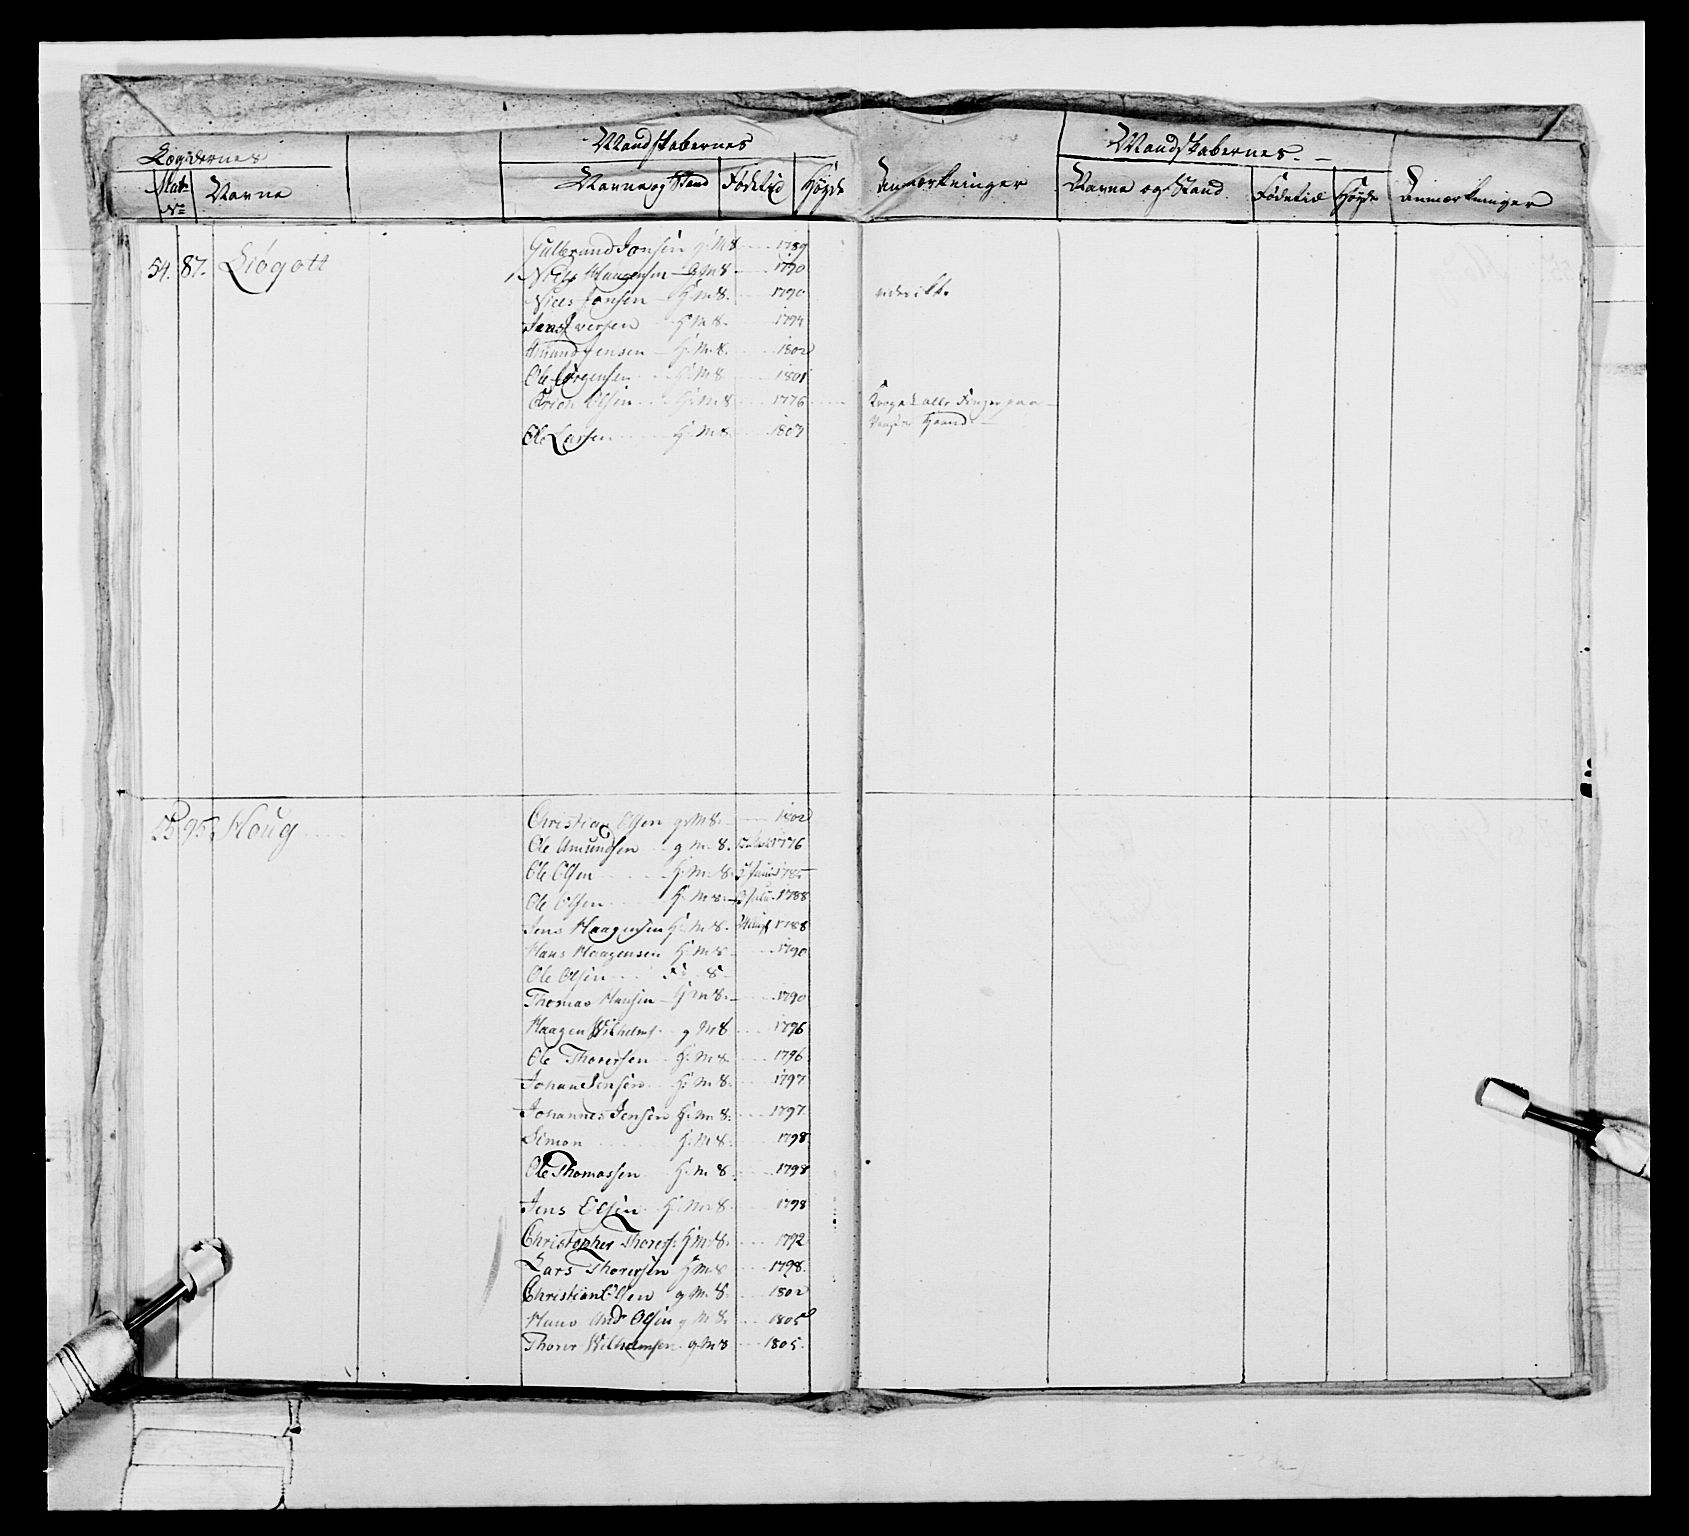 Lægdernes
Mandskabernes
Mandskabernes
Matr. No
Navne
Navne og Stand
Fødetid
Høyde
Anmærkninger
Navne og Stand
Fødetid
Høyde
Anmærkninger
54. 87. Liøgott
Gulbrand Jonsen g: M 8 1789
Niels Haagensen G M 8 1790
Niels Jonsen G: M 8. 1790
Jens Iversen G: M 8. 1794
Amund Jensen G: M. 8. 1802
Ole Jørgensen G: M 8 1801
Erich Olsen G: M 8 1776 alle Finger paa
Ole Larsen G: M 8 1807 Haand
55 95 Houg
Christian Olsen g M 8. 1802
Ole Amundsen g M. 8. 1776
Ole Olsen G: M. 8. 1785
Ole Olsen G: M 8. 1788
Jens Haagensen G: M 8. 1788
Hans Haagensen G: M 8 1790
Ole Olsen 8
Thomas Hansen G M 8. 1790
Haagen Wilhelms. g M 8 1796
Ole Thorersen G: M 8. 1796
Johan Jensen G: M 8. 1797
Johannes Jensen G: M. 8. 1797.
Simon G: M 8. 1798
Ole Thomassen G: M 8. 1798
Jens Olsen G: M 8 1798
Christopher Thorers: G M 8. 1792
Lars Thorersen G M 8 1798.
Christian Olsen g M. 8. 1802
Hans And: Olsen g M 8. 1805
Thorer Wilhelmsen. g M 8 1805.